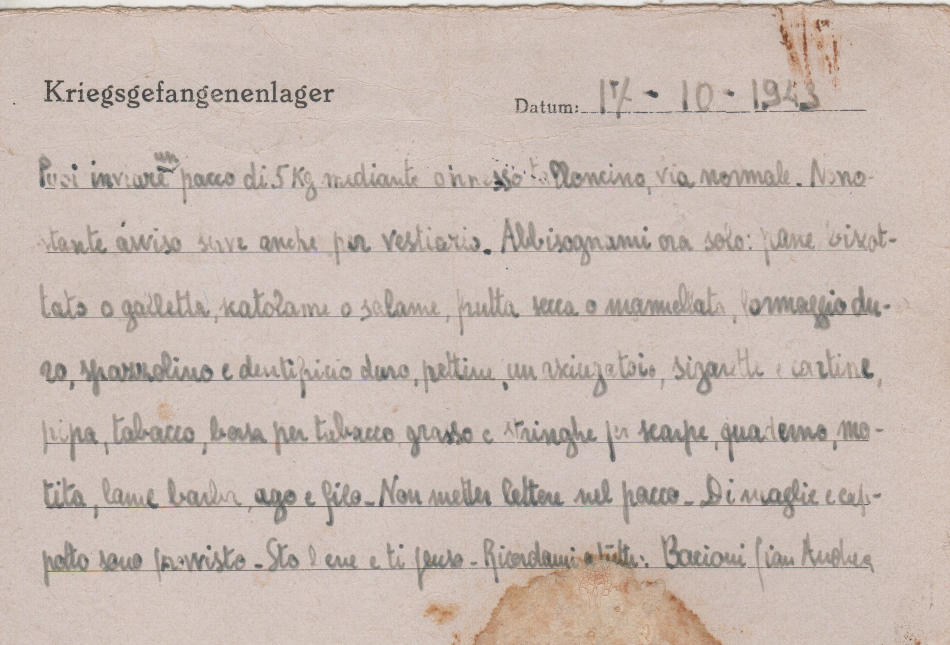 Kriegsgefangenenlager
Datum: 17 - 10 - 1943
Puoi inviare un pacco di 5 Kg mediante via normale. Nono-
stante avviso serve anche per vestiario. Abbisognami ora solo: pane biscot-
tato o galletta, scatolame o salame, frutta secca o marmellata, formaggio du-
ro, spazzolino e dentifricio duro, pettine, un asciugatoio, sigarette e cartine,
pipa, tabacco, borsa per tabacco, grasso e stringhe per scarpe, quaderno, ma-
tita, lame barba, ago e filo - Non metter lettere nel pacco - Di maglie e cap-
potto sono provvisto - Sto bene e ti penso - Ricordami a tutti: Bacioni Gian Andrea